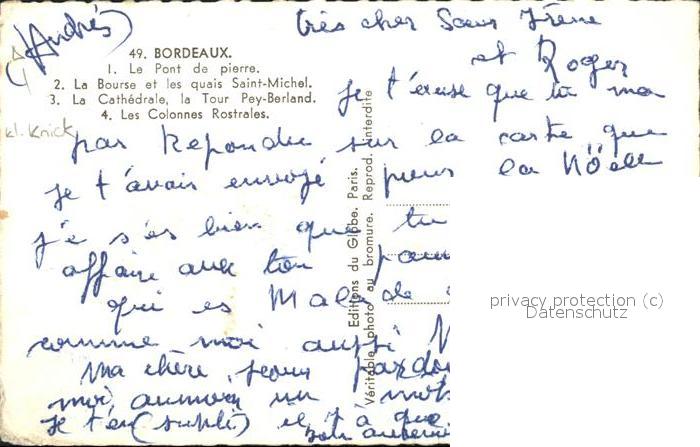 (Andrés)
très cher Sœur Irène
et Roger
49. BORDEAUX.
1. Le Pont de pierre.
2. La Bourse et les quais Saint-Michel.
3. La Cathédrale, la Tour Pey-Berland.
4. Les Colonnes Rostrales.
kl. Knick
je t'écuse que tu ma
par Repondu sur la carte que
je t'avais envoyé pour la Nöelle
j'e s'es bien que tu
affaire aux ton
qui es Malade
comme moi aussi
Ma chère, seour pardo
moi un mot
je t'en (suplí) il y a que
Editions du Globe. Paris.
Véritable photo au bromure. Reprod. interdite
privacy protection (c)
Datenschutz